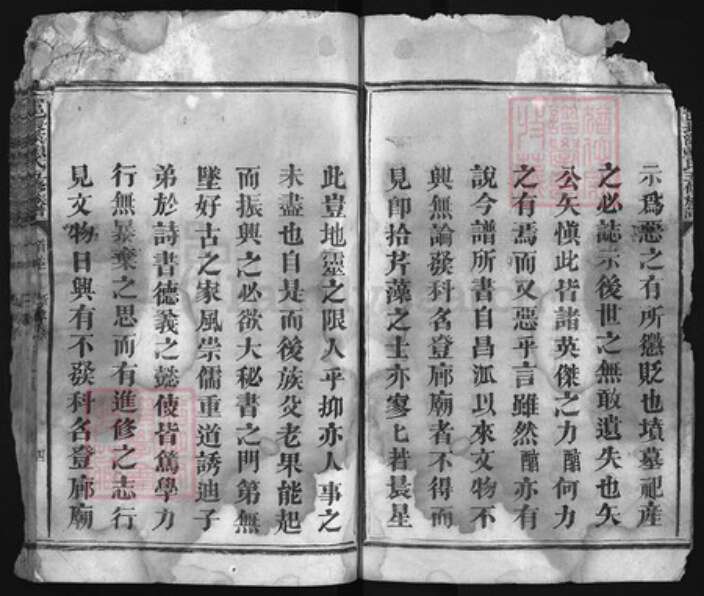 示爲惡之有所懲貶也墳墓祀產
之必誌示後世之無敢遺失也矣
公矢愼此皆諸英傑之力醕何力
之有焉而又惡乎言雖然醕亦有
說今譜所書自昌泒以來文物不
興無論發科名登廊廟者不得而
見卽拾芹藻之士亦寥匕若晨星
此豈地靈之限人乎抑亦人事之
未盡也自是而後族父老果能起
而振興之必欲大秘書之門第無
墜好古之家風崇儒重道誘迪子
弟於詩書德義之懿使皆篤學力
行無暴棄之思而有進修之志行
見文物日興有不發科名登廊廟
四